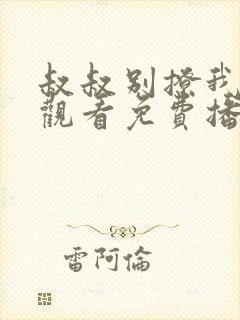 叔叔別撩我
觀看免費播
雷阿倫